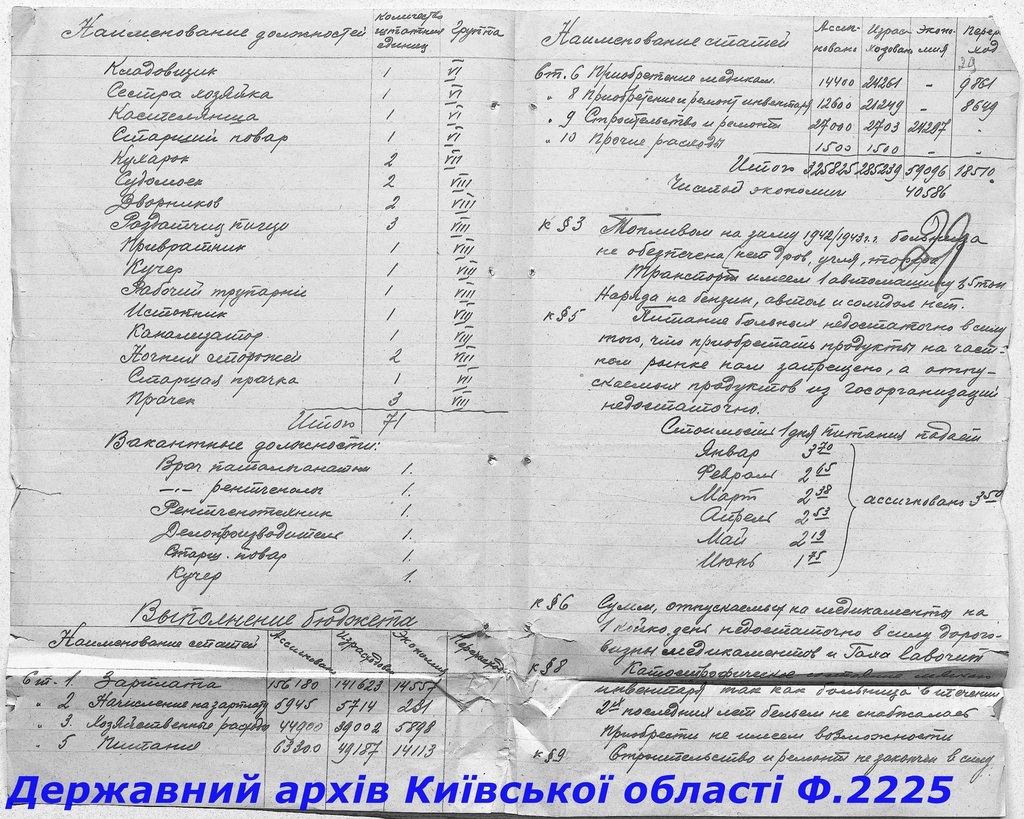 Наименование должностей | количество штатных единиц | Группа
Кладовщик 1 VI
Сестра хозяйка 1 VI
Кастелянша 1 VI
Старший повар 1 VI
Кухарок 2 VII
Судомоек 2 VIII
Дворников 2 VIII
Раздатчиц пищи 3 VIII
Привратник 1 VIII
Кучер 1 VIII
Рабочий трупарни 1 VIII
Истопник 1 VII
Канализатор 1 VII
Ночних сторожей 2 VIII
Старшая прачка 1 VII
Прачек 3 VIII
Итого 71
Вакантные должности:
Врач 1.
—"— рентгенолог 1.
Рентгенотехник 1.
Делопроизводитель 1.
Старш. повар 1.
Кучер 1.
Выполнение бюджета
Наименование статей | Ассигновано | Израсходов | Экономия
Ст. 1 Зарплата 156180 141623 14557
" 2 Начисление на зарплат 5945 5714 231
" 3. Хозяйственные расходы 44900 39002 5898
" 5 Питание 63300 49187 14113
Наименование статей | Ассигновано | Израсходовано | Экономия | Перерасход
29
Ст. 6 Приобретение медикам. 14400 24261 - 9861
" 8 Приобретение и ремонт инвентаря 12600 21249 - 8649
" 9 Строительство и ремонты 27000 2703 24297 -
" 10 Прочие расходы 1500 1500 - -
Итого 325825 285239 59096 18510
Чистой экономии 40586
к §3 Топливом на зиму 1942/1943 г.г. больница
не обезпечена (нет дров, угля, торфа)
Транспорт имеем 1 автомашину
Наряда на бензин, автол и солидол нет.
к §5 Питание больных недостаточно в силу
того, что приобретать продукты на част-
ном рынке нам запрещено, а отпу-
скаемых продуктов из госорганизаций
недостаточно.
Стоимость 1 дня питания падает
Январ 3 70
Феврал 2 65
Март 2 38
Апрель 2 53
Май 2 19
Июнь 1 75
ассигновано 3 50
к §6 Сумм, отпускаемых на медикаменты на
1 койко день недостаточно в силу дорого-
визны медикаментов и
к §8 Катострофическое состояние мягкого
инвентаря так как больница в течении
2-х последних лет бельем не снабжалась
Приобрести не имеем возможности
к §9 Строительство и ремонт не закончен в силу
Державний архів Київської області Ф.2225